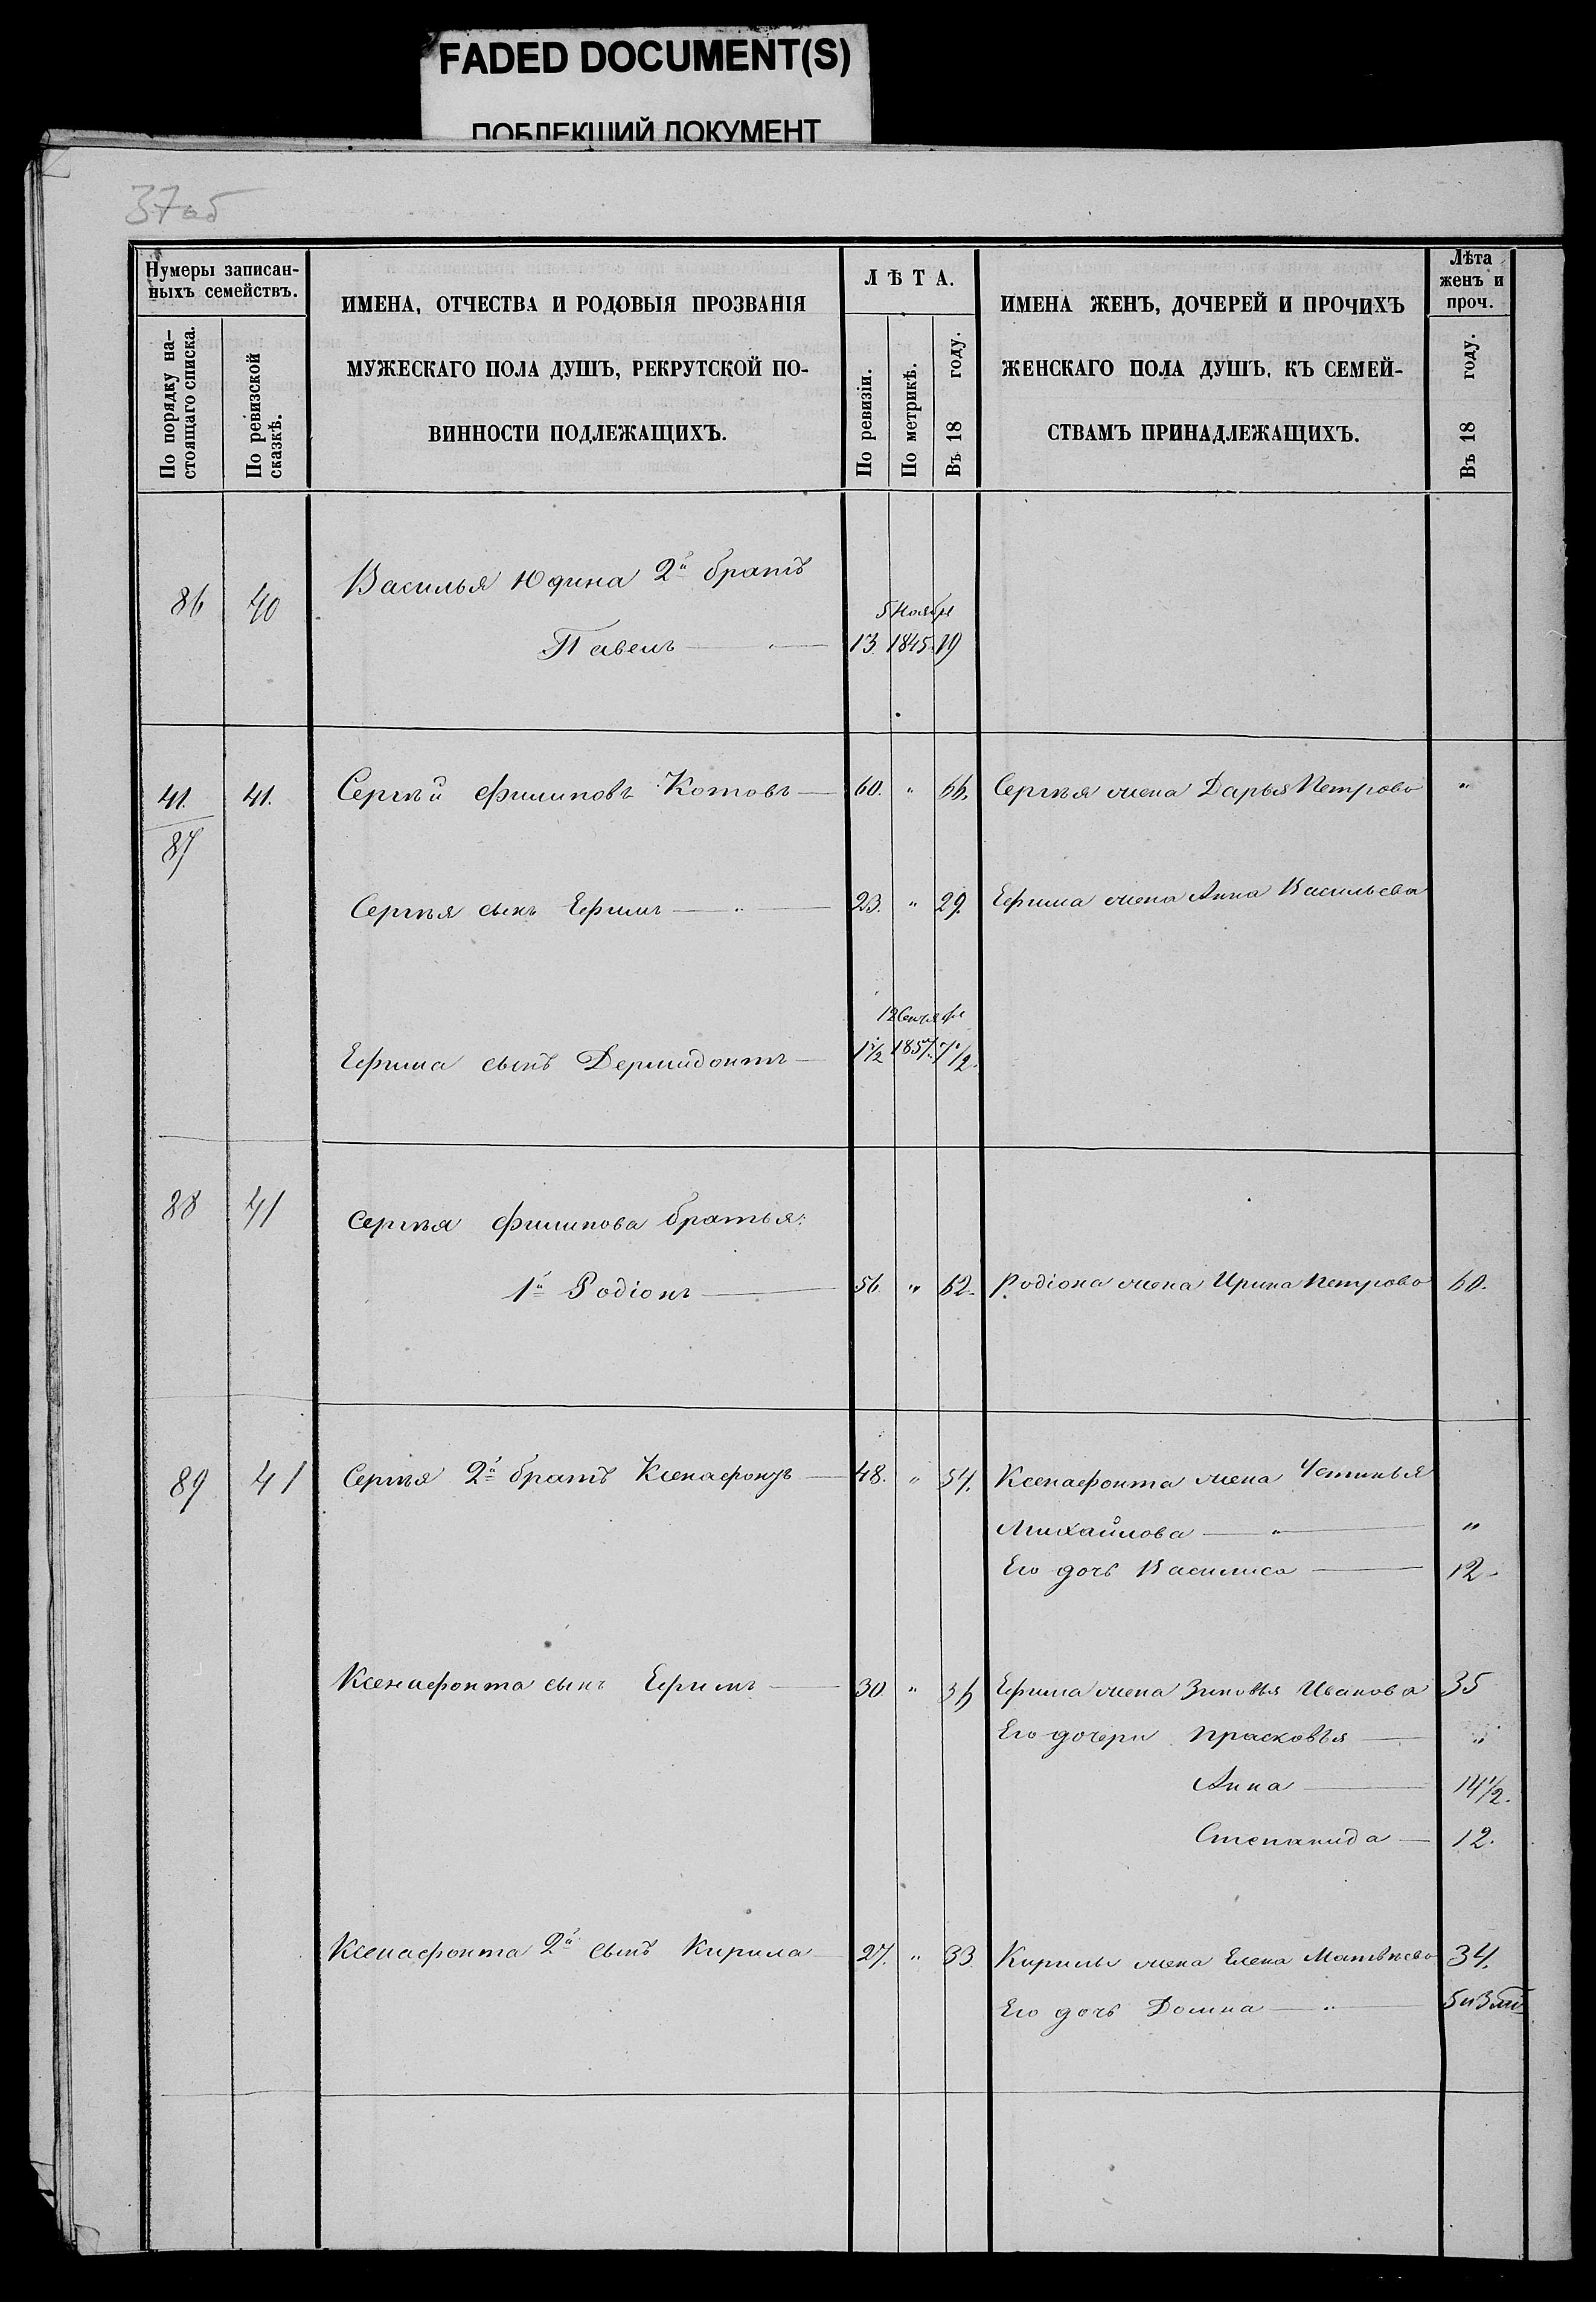 FADED DOCUMENT(S)
ПОБЛЕКШИЙ ДОКУМЕНТ
37об
Нумеры записан-
ныхъ семействъ.
По порядку на-
стоящаго списка.
По ревизской
сказкѣ.
ИМЕНА, ОТЧЕСТВА И РОДОВЫЯ ПРОЗВАНІЯ
МУЖЕСКАГО ПОЛА ДУШЪ, РЕКРУТСКОЙ ПО-
ВИННОСТИ ПОДЛЕЖАЩИХЪ.
ЛѢТА.
По ревизіи.
По метрикѣ.
Въ 18 году.
ИМЕНА ЖЕНЪ, ДОЧЕРЕЙ И ПРОЧИХЪ
ЖЕНСКАГО ПОЛА ДУШЪ, КЪ СЕМЕЙ-
СТВАМЪ ПРИНАДЛЕЖАЩИХЪ.
Лѣта
женъ и
проч.
Въ 18 году.
86 40 Василья Юдина 2й братъ
5 Ноября
Павелъ — " — 13. 1845. 19
41. 41. Сергѣй Филиповъ Котовъ — 60. " 66. Сергѣя жена Дарья Петрова "
87
Сергѣя сынъ Ефимъ — " — 23. " 29. Ефима жена Анна Васильева
12 Сентября
Ефима сынъ Дермидонтъ — 1½ 1857. 7½.
88 41 Сергѣя Филипова братья:
1й Родіонъ — 56. " 62. Родіона жена Ирина Петрова 60.
89 41 Сергѣя 2й братъ Ксенафонтъ — 48. " 54. Ксенафонта жена Устинья
Михайлова — " — "
Его дочь Василиса — 12.
Ксенафонта сынъ Ефимъ — 30. " 36 Ефима жена Зиновья Иванова 35
Его дочери Прасковья — "
Анна — 14½.
Степанида — 12.
Ксенафонта 2й сынъ Кирила — 27. " 33 Кирилы жена Елена Матвѣева 34.
Его дочь Домна — " —